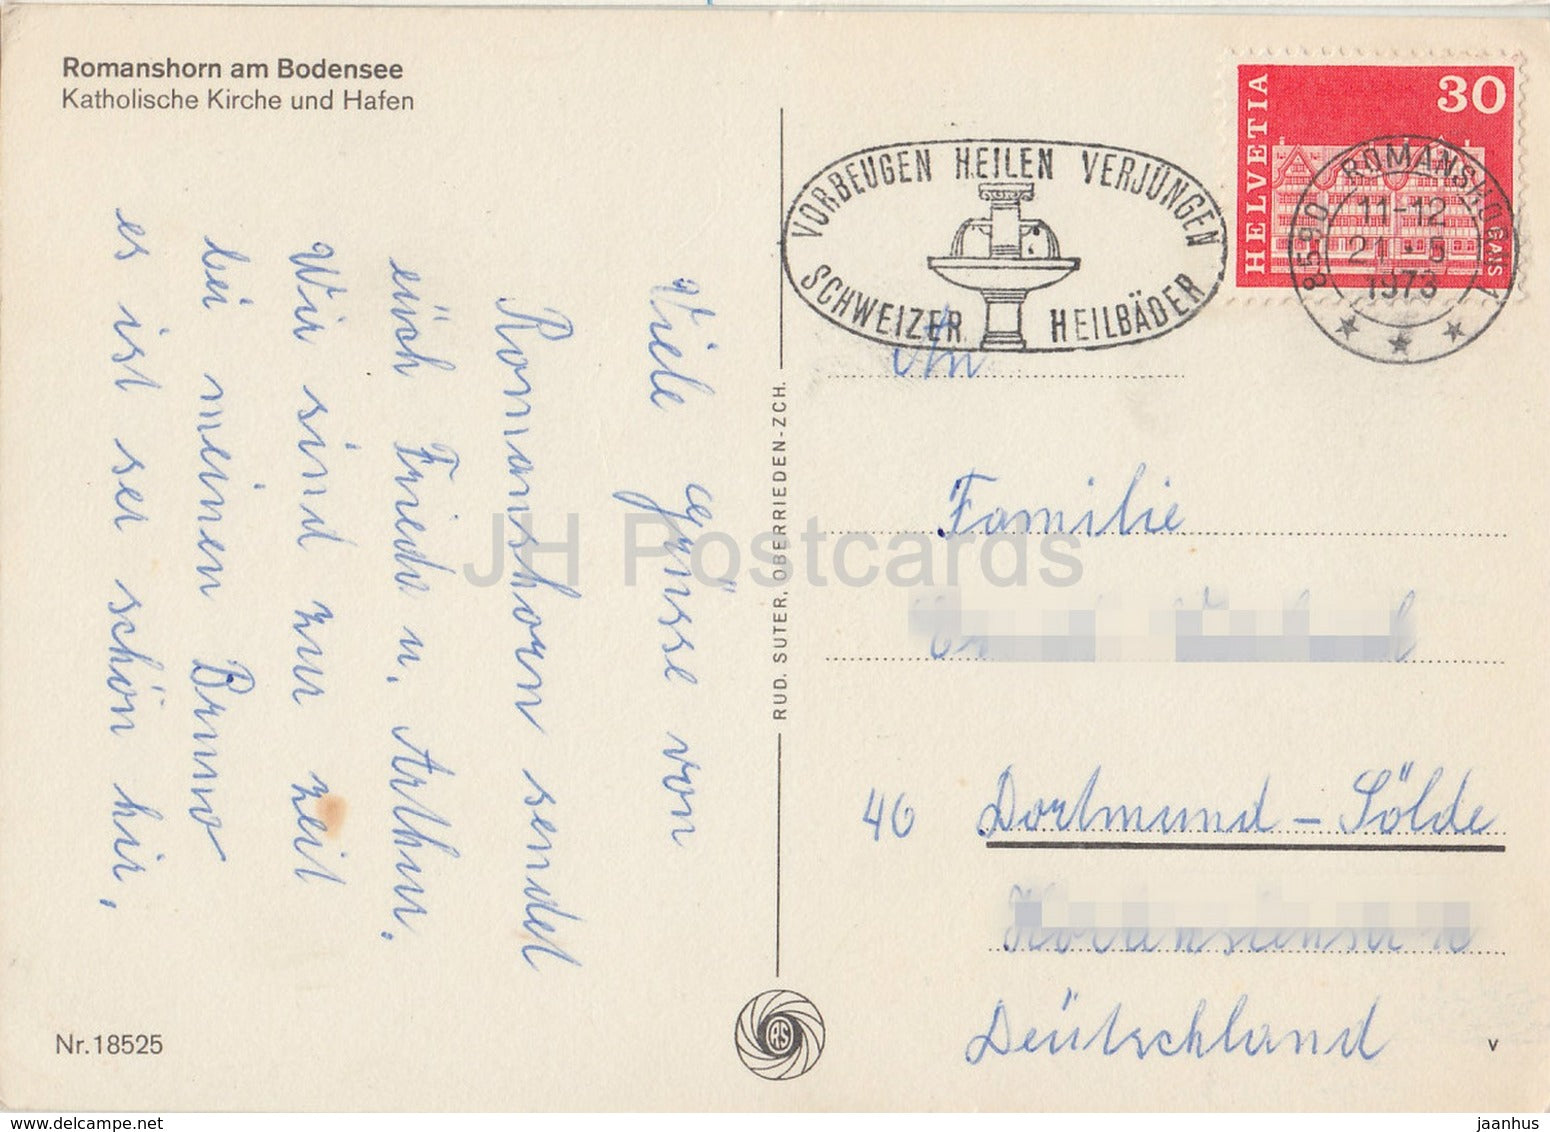 Romanshorn am Bodensee
Katholische Kirche und Hafen
Viele Grüsse von
Romanshorn sendet
eüch Frieda u. Arthur.
Wir sind zur zeit
bei meinen Bruno
es ist ser schön hir.
Nr.18525
RUD. SUTER, OBERRIEDEN-ZCH.
RS
VORBEUGEN HEILEN VERJÜNGEN
SCHWEIZER HEILBÄDER
HELVETIA
30
8590 ROMANSHORN
11-12
21.-5
1973
An
Familie
46 Dortmund - Sölde
Deütschland
v
JH Postcards
jaanhus